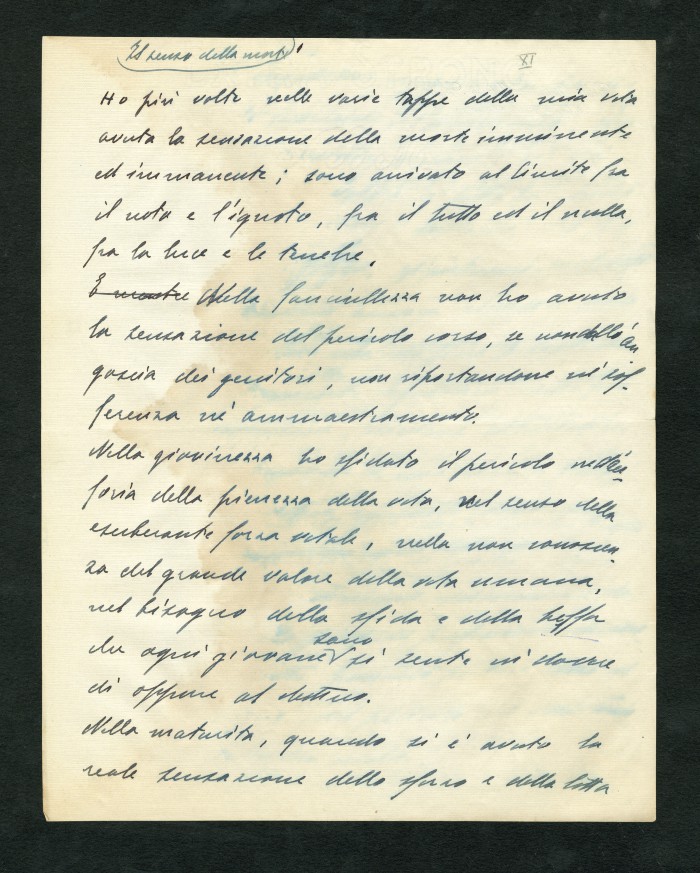 Il senso della morte
XI
Ho più volte nelle varie tappe della mia vita
avuta la sensazione della morte imminente
ed immanente; sono arrivato al limite fra
il noto e l'ignoto, fra il tutto ed il nulla,
fra la luce e le tenebre.
Nella fanciullezza non ho avuto
la sensazione del pericolo corso, se non dall'an
goscia dei genitori, non riportandone nè sof-
ferenza nè ammaestramento.
Nella giovinezza ho sfidato il pericolo nell'eu-
foria della pienezza della vita, nel senso della
esuberante forza vitale, nella non conoscen
za del grande valore della vita umana,
nel bisogno della sfida e della beffa
che ogni giovane sano si sente in dovere
di opporre al destino.
Nella maturità, quando si è avuto la
reale sensazione dello sforzo e della lotta